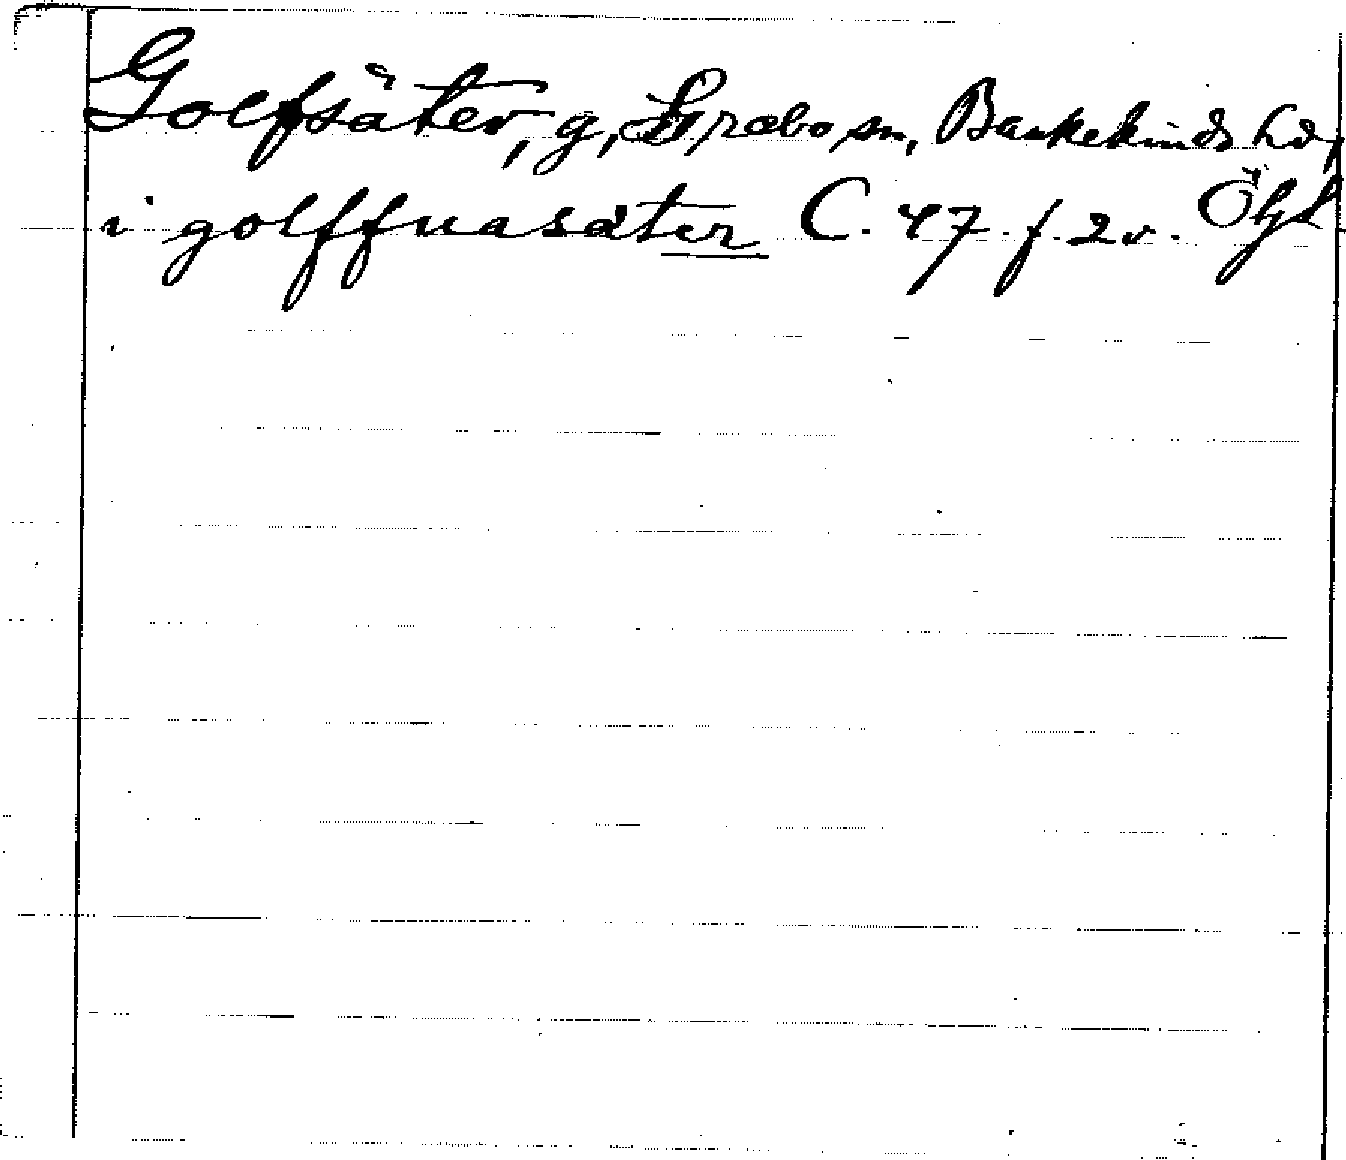 Golfsäter, g, Grebo sn, Bankekinds hd,
i golffuasäter C. 47. f. 2v. Ögl